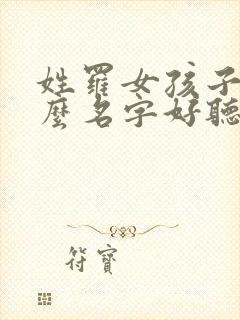 姓羅女孩子
麼名字好聽
符寶